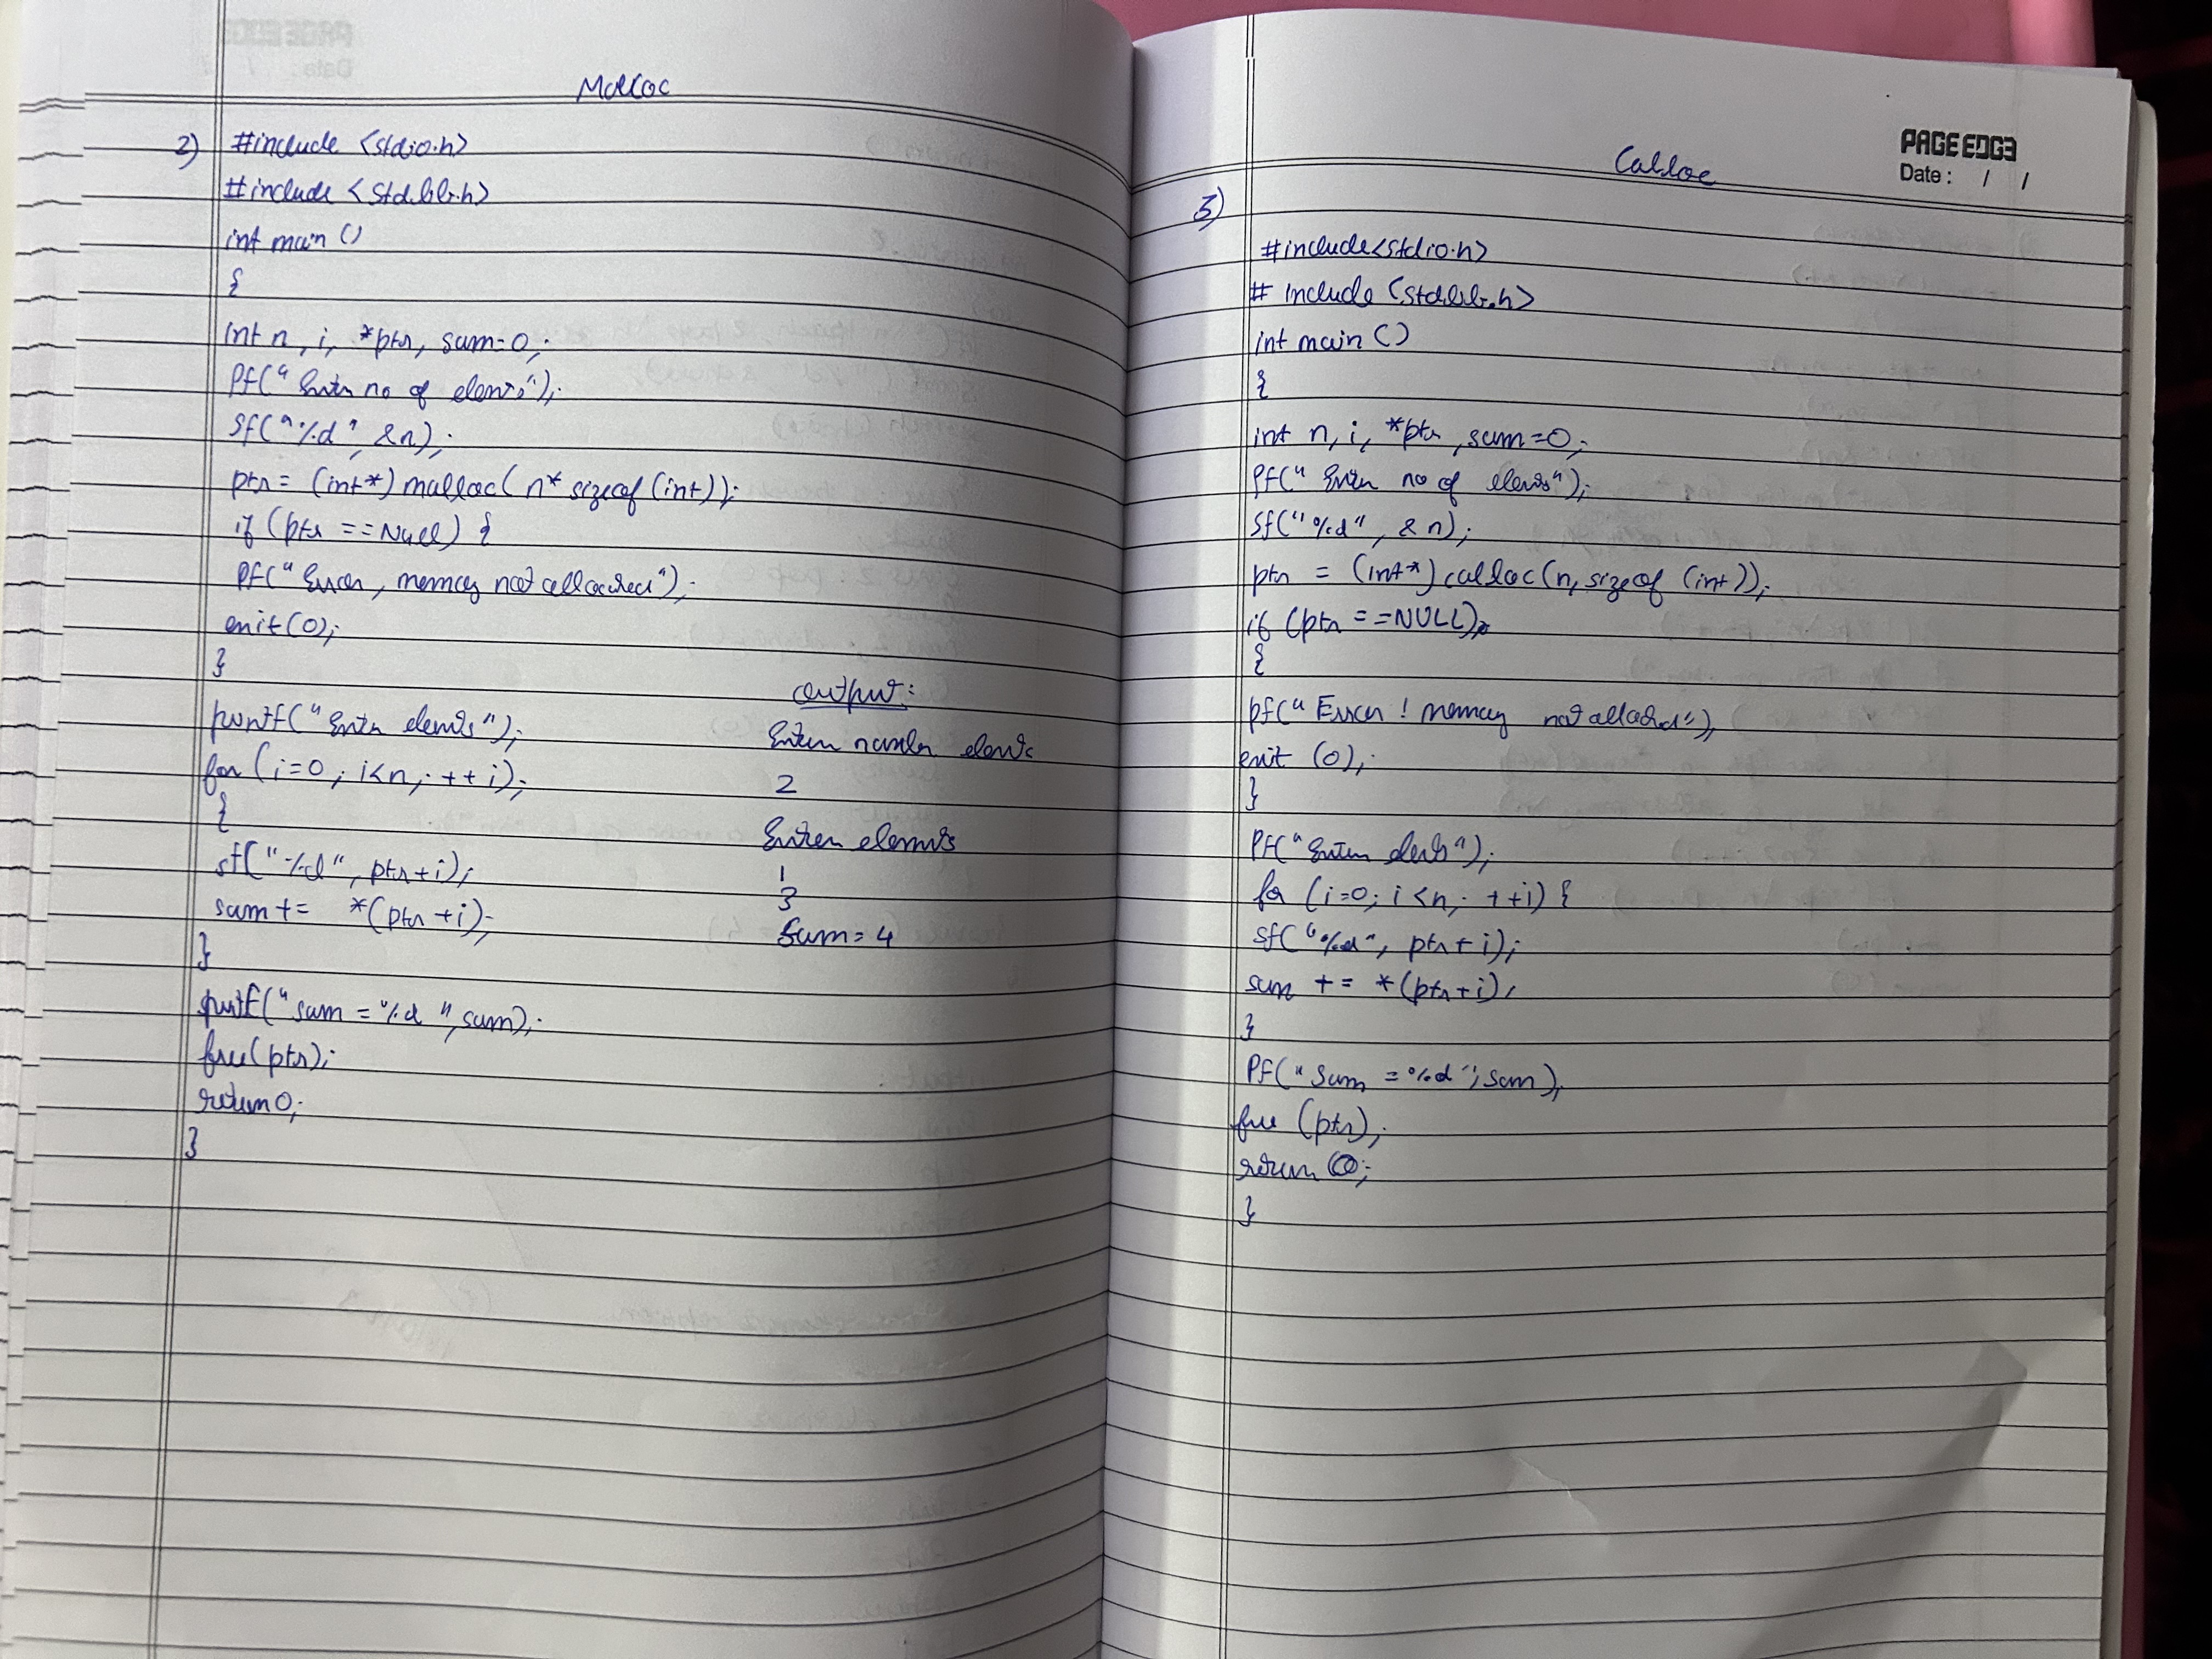 Malloc
2) #include <stdio.h>
#include <stdlib.h>
int main ()
{
int n, i, *ptr, sum=0;
pf("Enter no of elements");
sf("%d", &n);
ptr = (int*) malloc(n* sizeof(int));
if (ptr == NULL) {
pf("Error, memory not allocated");
exit(0);
}
printf("Enter elements");
for (i=0; i<n; ++i);
{
sf("%d", ptr+i);
sum += *(ptr+i);
}
printf("sum = %d", sum);
free(ptr);
return 0;
}
output:
Enter number elements
2
Enter elements
1
3
Sum = 4
PAGE EDGE
Date: / /
Calloc
3)
#include<stdio.h>
# include <stdlib.h>
int main ()
{
int n, i, *ptr, sum=0;
pf("Enter no of elements");
sf("%d", &n);
ptr = (int*) calloc(n, sizeof (int));
if (ptr == NULL)
{
pf("Error! memory not allocated");
exit (0);
}
pf("Enter elements");
for (i=0; i<n; ++i) {
sf("%d", ptr+i);
sum += *(ptr+i);
}
Pf("Sum = %d", sum);
free (ptr);
return 0;
}